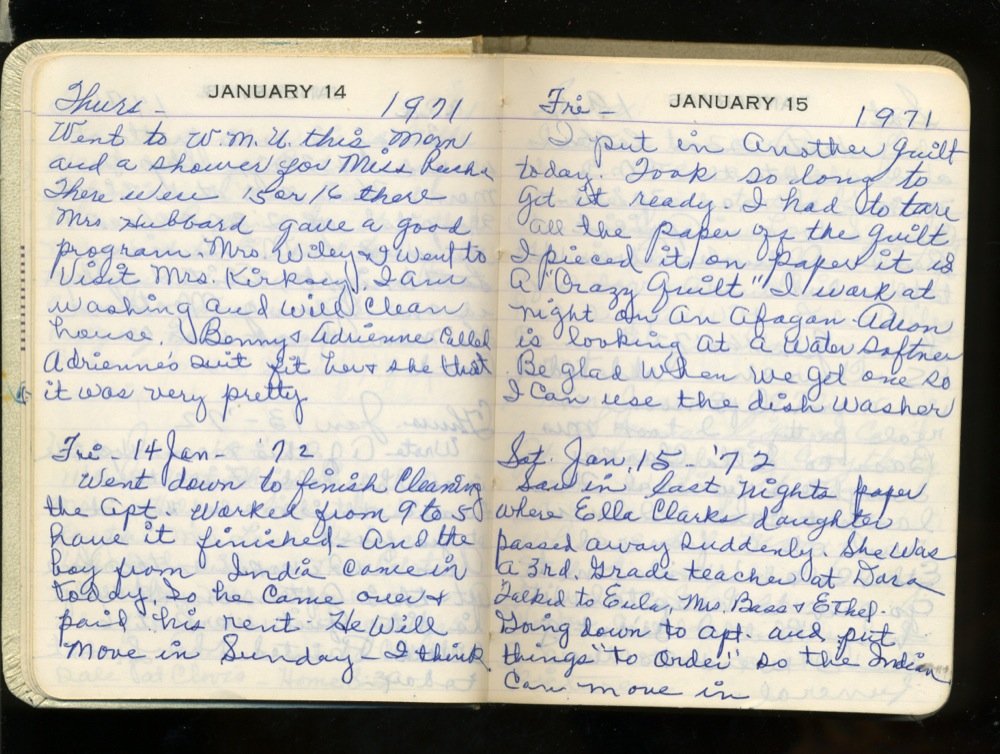 JANUARY 14
Thurs - 1971
Went to W.M.U. this morn
and a shower for Miss
There were 15 or 16 there
Mrs Hubbard gave a good
program. Mrs. Wiley & I went to
Visit Mrs. Kirksey. I am
washing and will clean
house. Benny & Adrienne Called
Adrienne's suit fit her & she that
it was very pretty
Fri - 14 Jan - '72
Went down to finish Cleaning
the Apt. Worked from 9 to 5
have it finished - And the
boy from India came in
today. So he came over &
paid his rent He Will
move in Sunday - I think
JANUARY 15
Fri - 1971
I put in Another quilt
today. Took so long to
get it ready. I had to tare
all the paper off the quilt
I pieced it on paper it is
A "Crazy Quilt" I work at
night on An Afagan. Adron
is looking at a Water Softner
Be glad When we get one so
I Can use the dish washer
Sat. Jan. 15 - '72
Saw in last nights paper
where Ella Clarks daughter
passed away suddenly. She Was
a 3rd. Grade teacher at Dora
Talked to Eula, Mrs. Bass & Ethel.
Going down to Apt. and put
things "to Order" so the Indian
Can move in